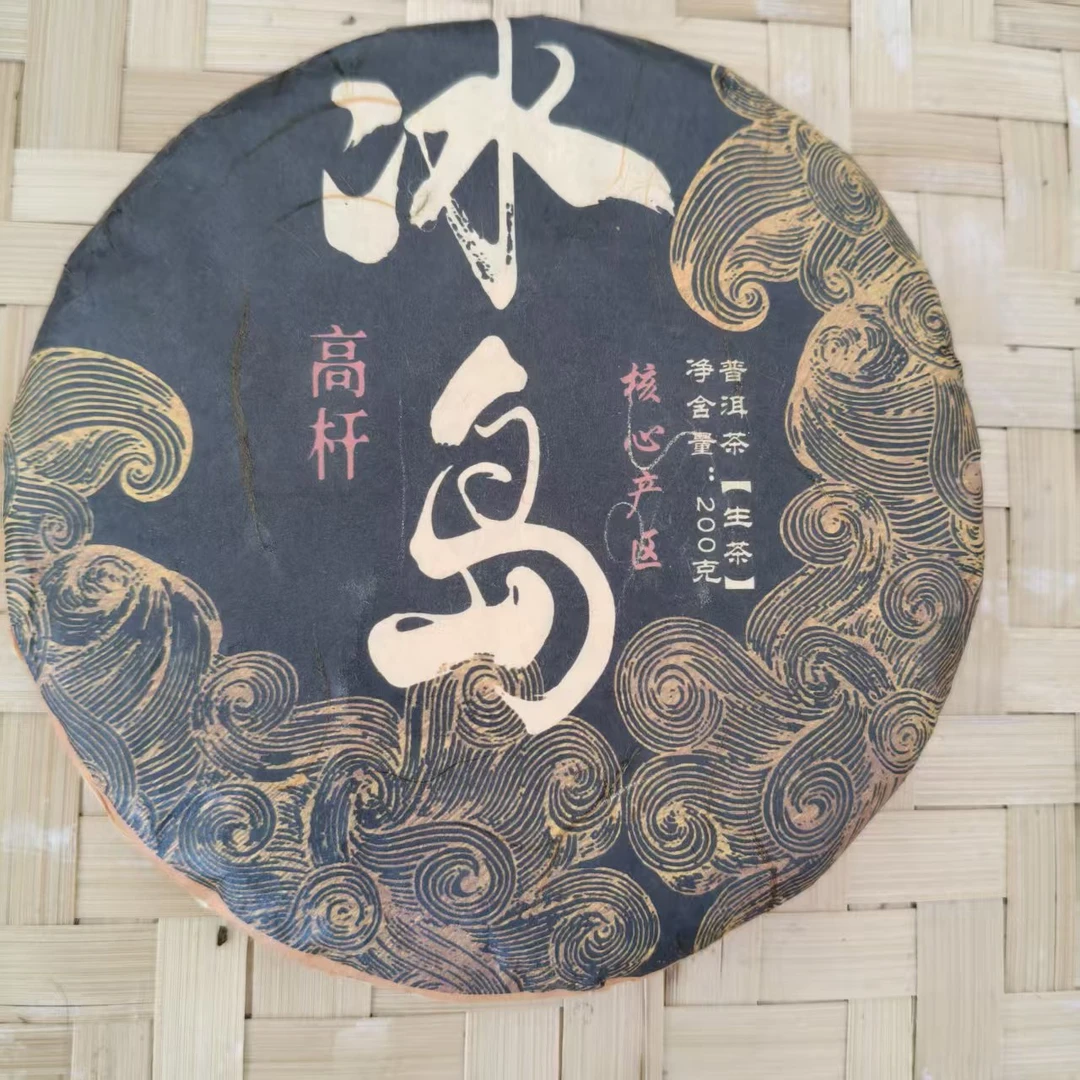 冰岛
高杆
核心产区
普洱茶【生茶】
净含量:200克